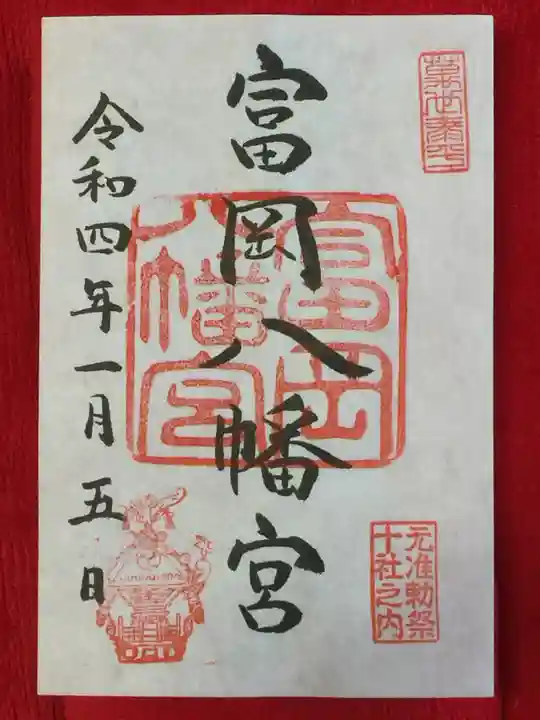 萬世泰平
富岡八幡宮
富岡
八幡宮
元准勅祭
十社之内
令和四年一月五日